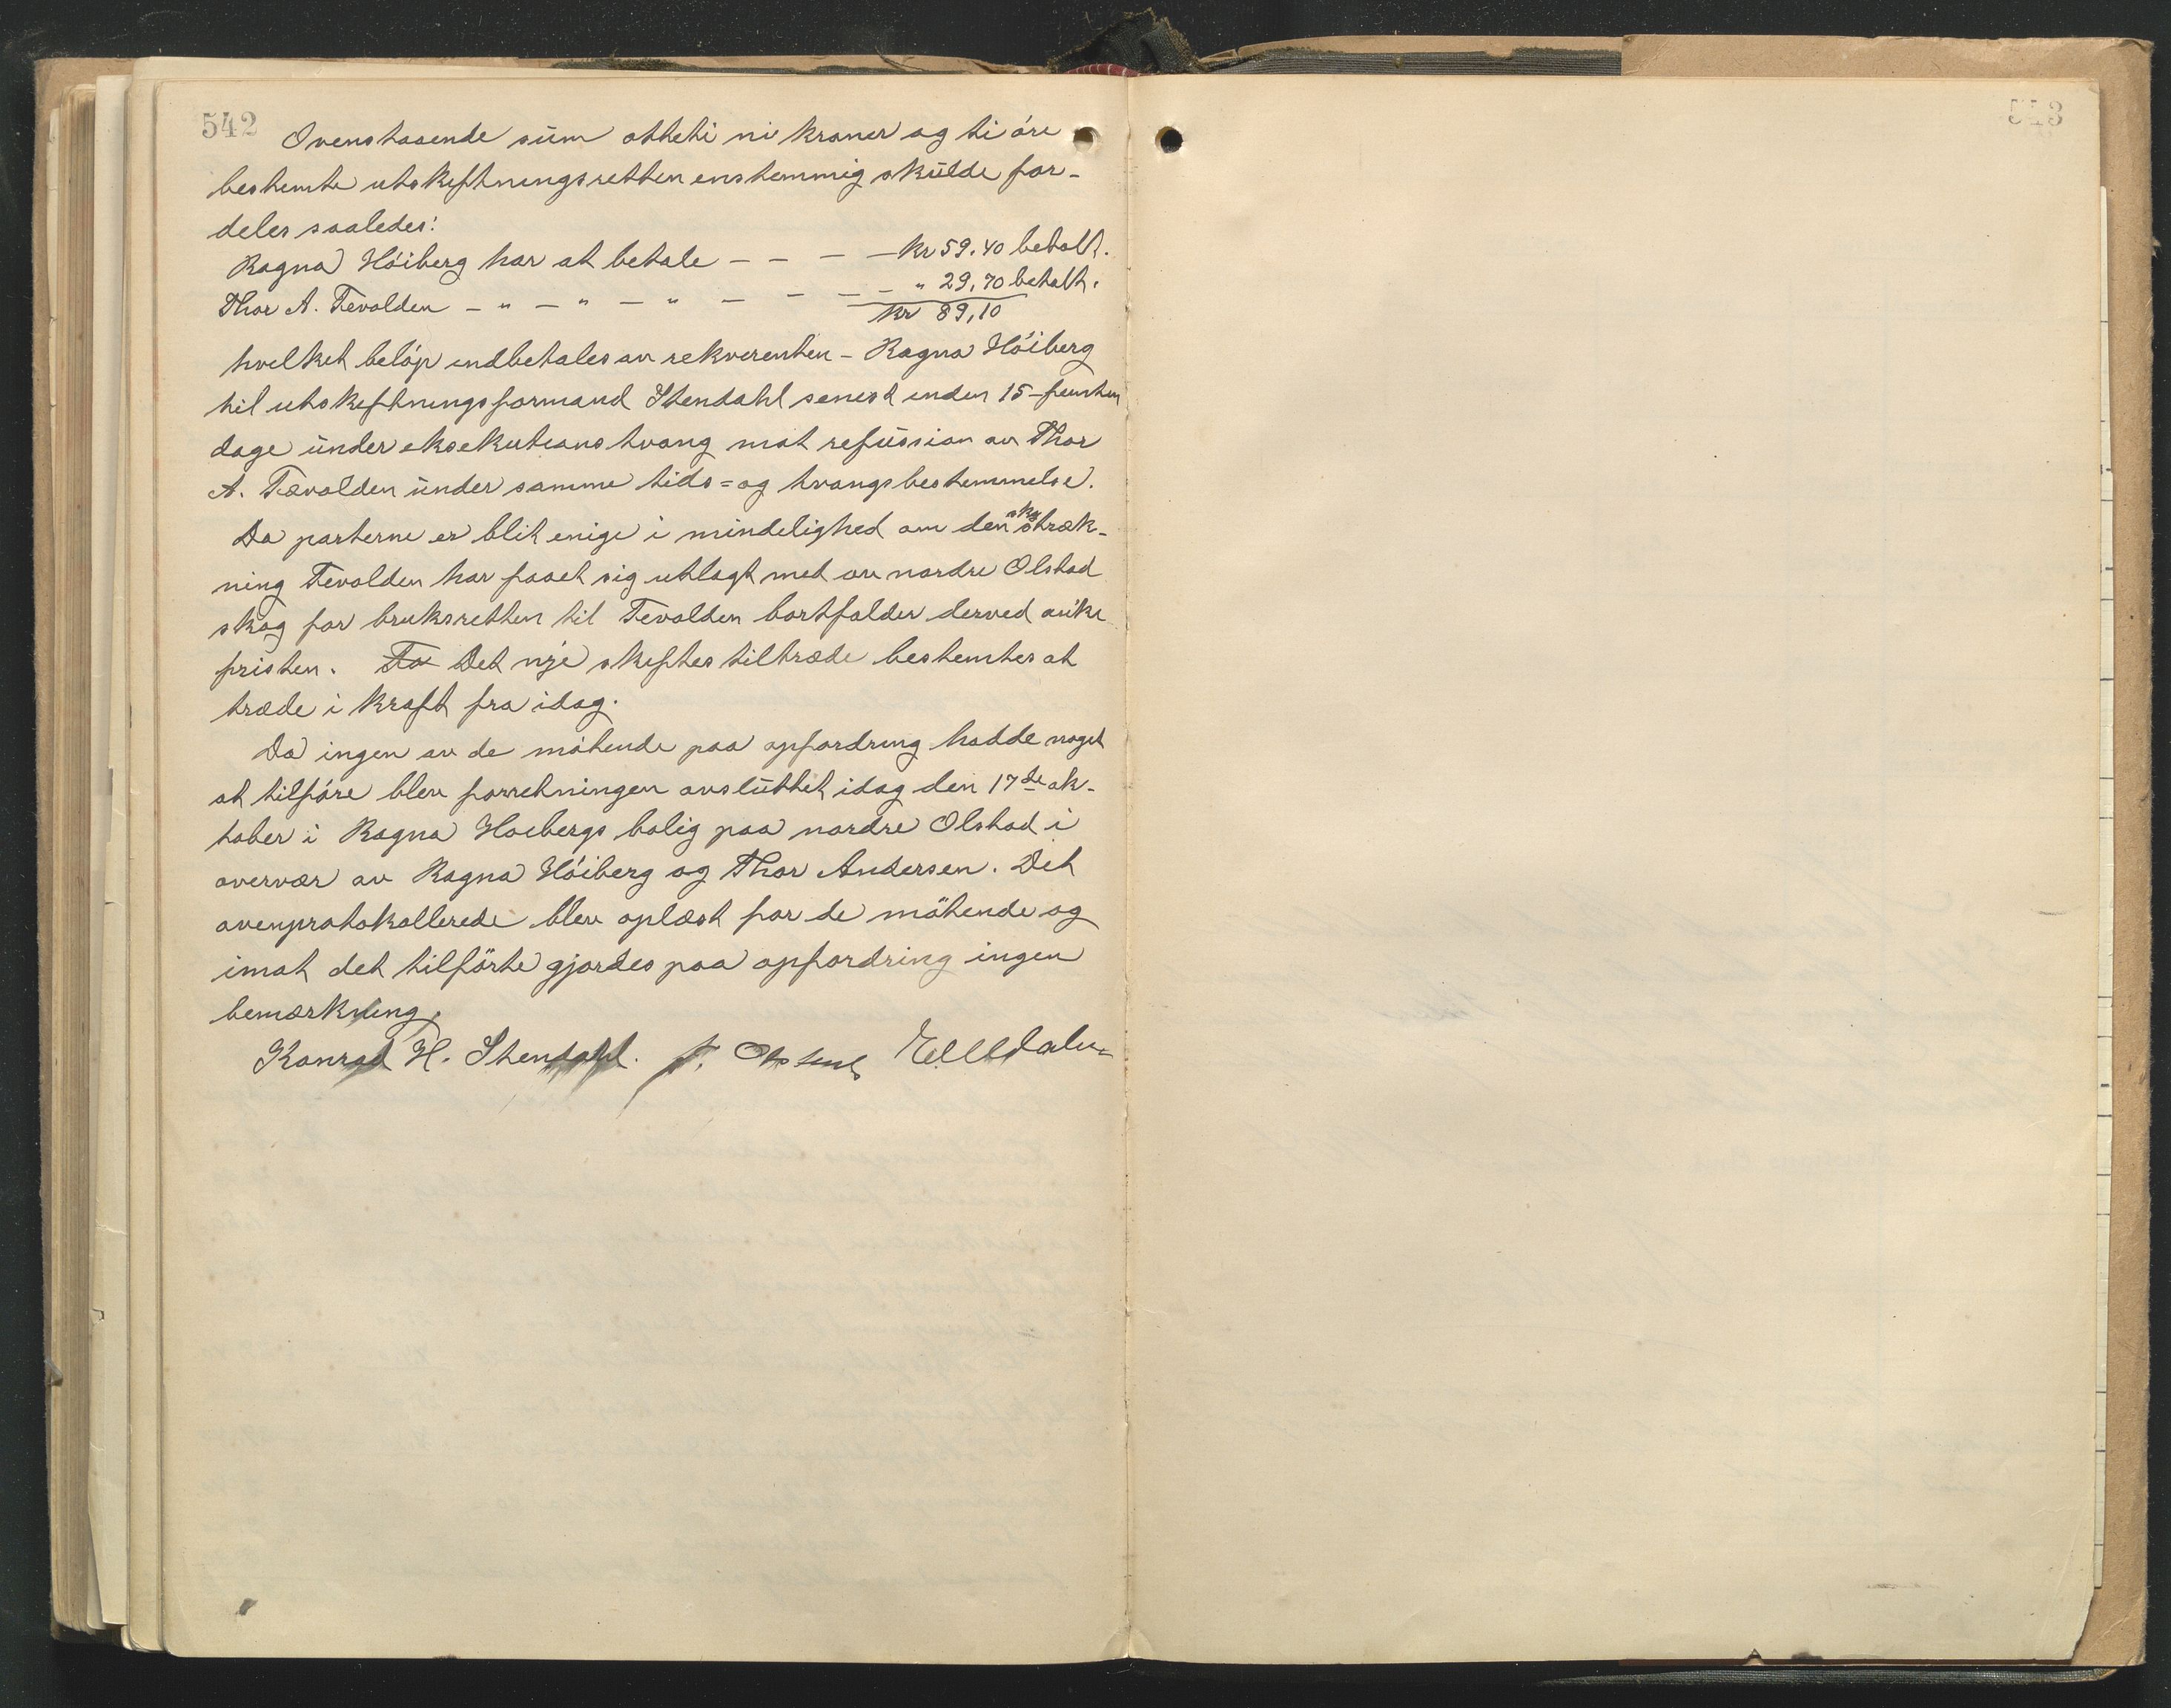 542
Ovenstaaende sum otteti ni kroner og ti øre
bestemte utskiftningsretten enstemmig skulde for-
deles saaledes:
Ragna Høiberg har at betale — — — — Kr 59.40 betalt.
Thor A. Tevolden — " — " — " — — — — " 29,70 betalt.
Kr 89,10
hvilket beløp indbetales av rekverenten - Ragna Høiberg
til utskiftningsformand Stendahl senest inden 15 - femten
dage under eksekutionstvang mot refusion av Thor
A. Tævolden under samme tids= og tvangsbestemmelse.
Da parterne er blit enige i mindelighed om den skog stræk-
ning Tevolden har faaet sig utlagt met av nordre Olstad
skog for bruksretten til Tevolden bortfalder derved anke
fristen. Det nye skiftes tiltræde bestemtes at
træde i kraft fra idag.
Da ingen av de møtende paa opfordring hadde noget
at tilføre blev forretningen avsluttet idag den 17de ok-
tober i Ragna Hoebergs bolig paa nordre Olstad i
overvær av Ragna Høiberg og Thor Andersen. Det
ovenprotokollerede blev oplæst for de møtende og
imot det tilførte gjordes paa opfordring ingen
bemærkning.
Konrad H. Stendahl.
543